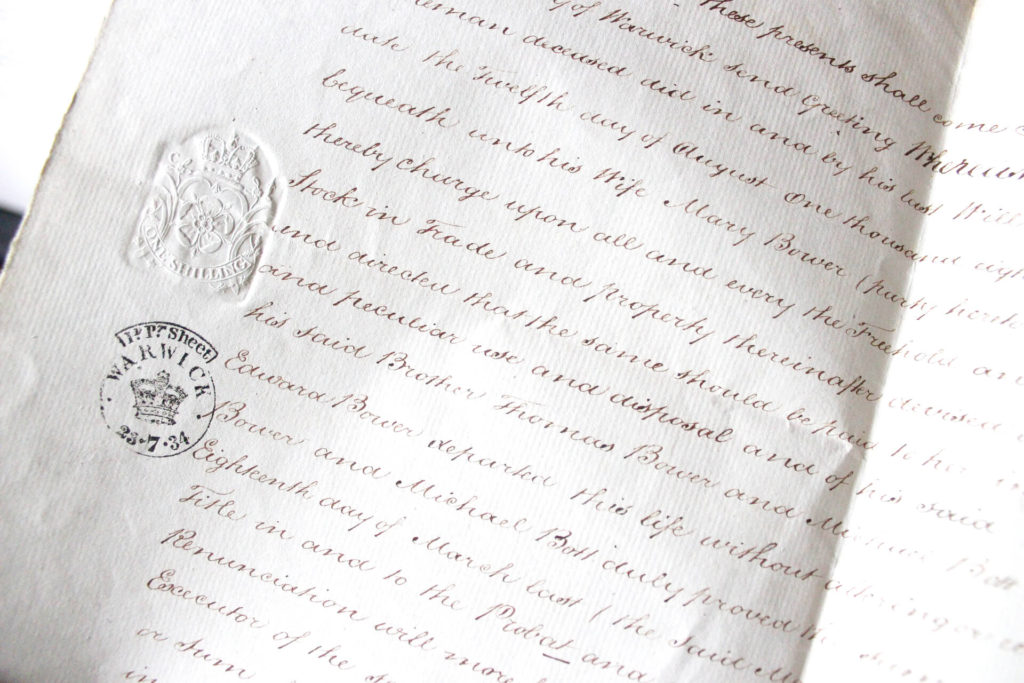 these presents shall come
of Warwick send Greeting Whereas
deceased did in and by his last Will
date the Twelfth day of August One thousand eigh
bequeath unto his Wife Mary Bower (party hereto
thereby charge upon all and every the Freehold an
Stock in Trade and property thereinafter devised
and directed that the same should be paid to her in
and peculiar use and disposal and of his said
his said Brother Thomas Bower and Michael Bott
Edward Bower departed this life without altering or
Bower and Michael Bott duly proved the
Eighteenth day of March last (the said M
Title in and to the Probat and
Renunciation will more
Executor of the
or sum
in
ONE SHILLING
Pr. Sheet
WARWICK
23·7·34